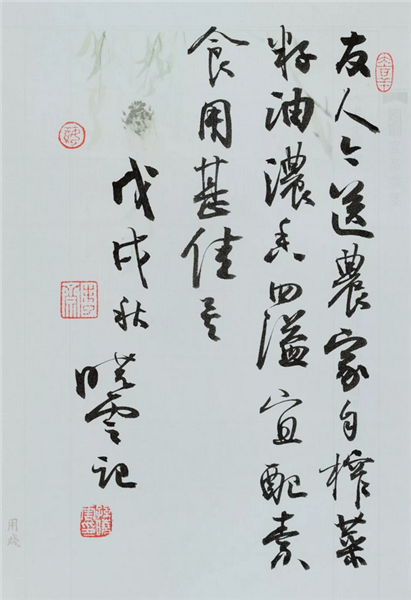 友人今送農家自榨菜
籽油濃香四溢宜配素
食用甚佳
戊戌秋曉雲記
用牋